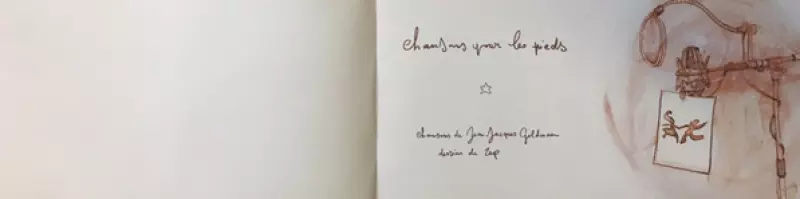 chansons pour les pieds
chansons de Jean-Jacques Goldman
dessins de Zep